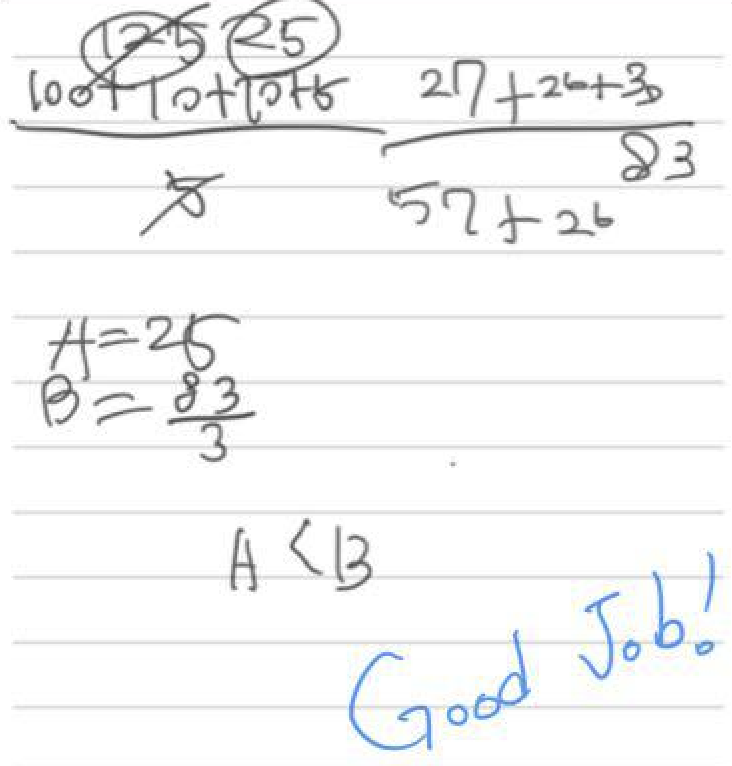 125 25
100+10+10+5 27+26+30
5 83
57+26
A=25
B=83/3
A<B
Good Job!